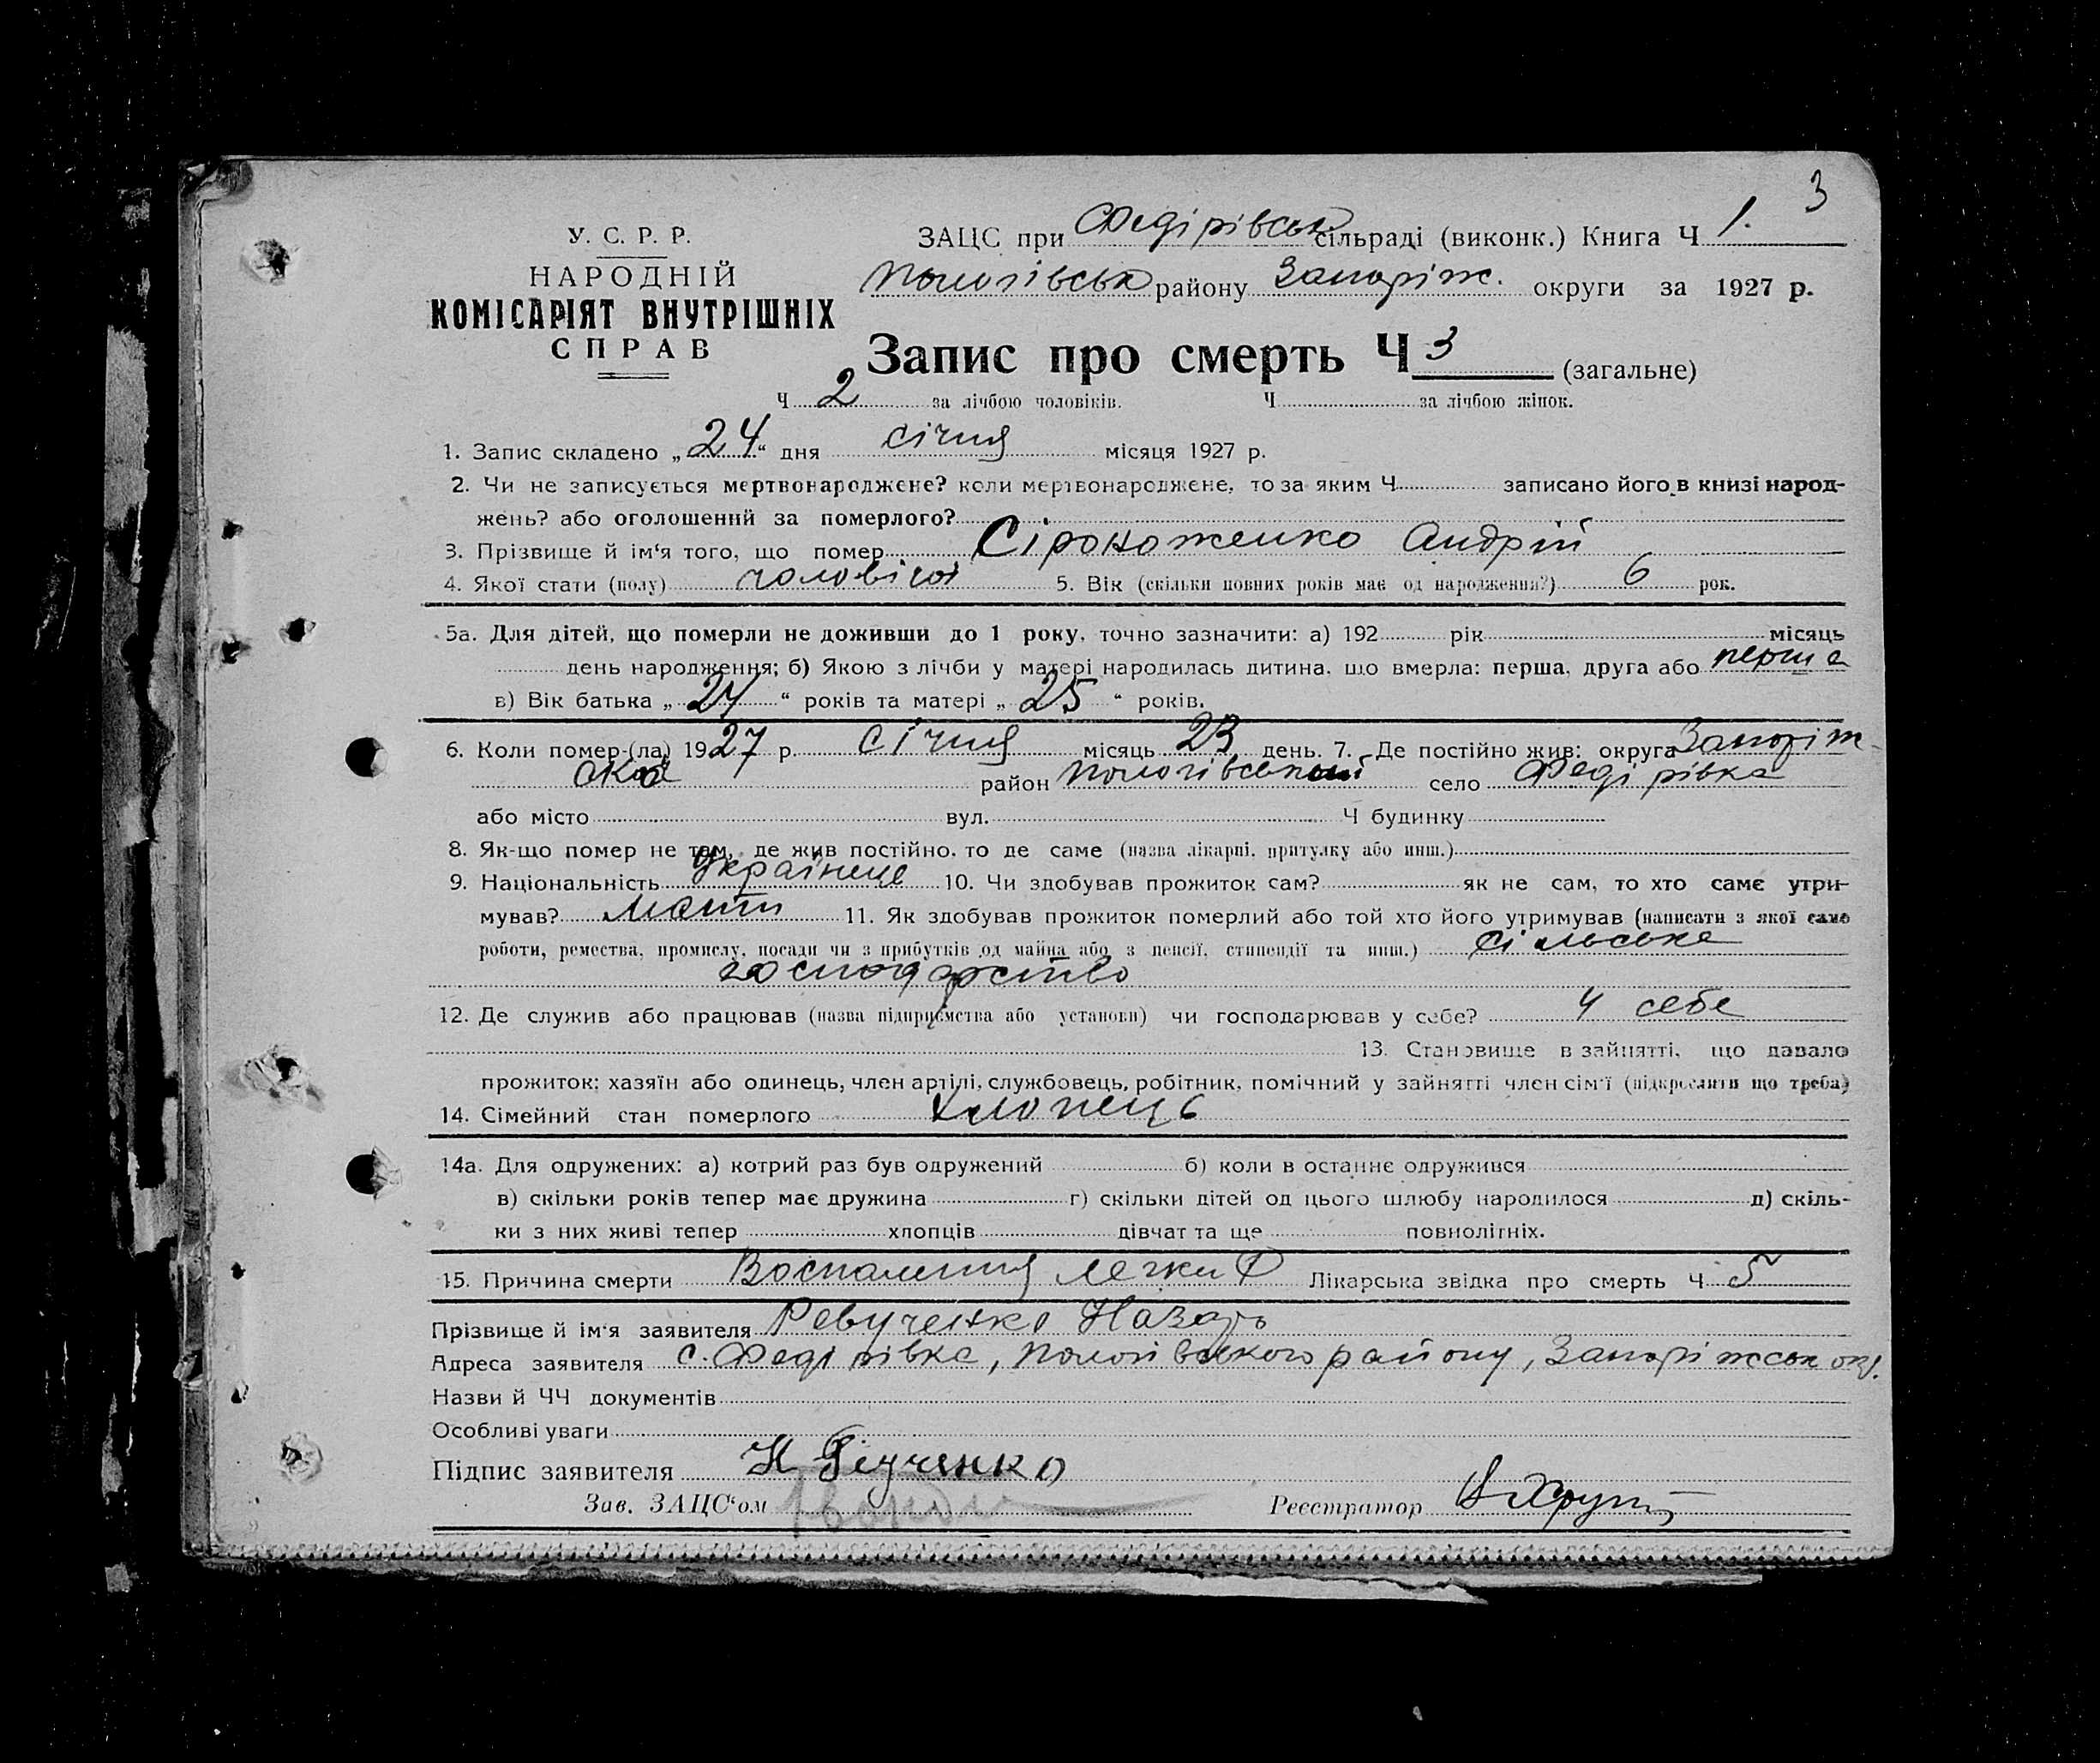 3
У. С. Р. Р.
НАРОДНІЙ
КОМІСАРІЯТ ВНУТРІШНІХ
СПРАВ
ЗАЦС при Федірівськ сільраді (виконк.) Книга Ч 1.
Пологівськ району Запоріж. округи за 1927 р.
Запис про смерть Ч 3 (загальне)
Ч 2 за лічбою чоловіків. Ч за лічбою жінок.
1. Запис складено „24“ дня січня місяця 1927 р.
2. Чи не записується мертвонароджене? коли мертвонароджене, то за яким Ч записано його в книзі народ-
жень? або оголошений за померлого?
3. Прізвище й ім‘я того, що помер Сіроноженко Андрій
4. Якої стати (полу) чоловічої 5. Вік (скільки повних років має од народження?) 6 рок.
5а. Для дітей, що померли не доживши до 1 року, точно зазначити: а) 192 рік місяць
день народження; б) Якою з лічби у матері народилась дитина, що вмерла: перша, друга або перша
в) Вік батька „27“ років та матері „25“ років.
6. Коли помер-(ла) 1927 р. січня місяць 23 день. 7. Де постійно жив: округа Запоріж-
ська район Пологівський село Федірівка
або місто вул. Ч будинку
8. Як-що помер не там, де жив постійно, то де саме (назва лікарні, притулку або инш.)
9. Національність Українець 10. Чи здобував прожиток сам? як не сам, то хто саме утри-
мував? Мати 11. Як здобував прожиток померлий або той хто його утримував (написати з якої саме
роботи, ремества, промислу, посади чи з прибутків од майна або з пенсії, стипендії та инш.) сільське
господарство
12. Де служив або працював (назва підприємства або установи) чи господарював у себе? У себе
13. Становище в зайнятті, що давало
прожиток: хазяїн або одинець, член артілі, службовець, робітник, помічний у зайнятті член сім‘ї (підкреслити що треба)
14. Сімейний стан померлого Хлопець
14а. Для одружених: а) котрий раз був одружений б) коли в останнє одружився
в) скільки років тепер має дружина г) скільки дітей од цього шлюбу народилося д) скіль-
ки з них живі тепер хлопців дівчат та ще повнолітніх.
15. Причина смерти Воспаления легких Лікарська звідка про смерть Ч 5
Прізвище й ім‘я заявителя Ревученко Назарь
Адреса заявителя с. Федірівка, Пологівського району, Запоріжськ окр.
Назви й ЧЧ документів
Особливі уваги
Підпис заявителя Н
Зав. ЗАЦС‘ом Реєстратор